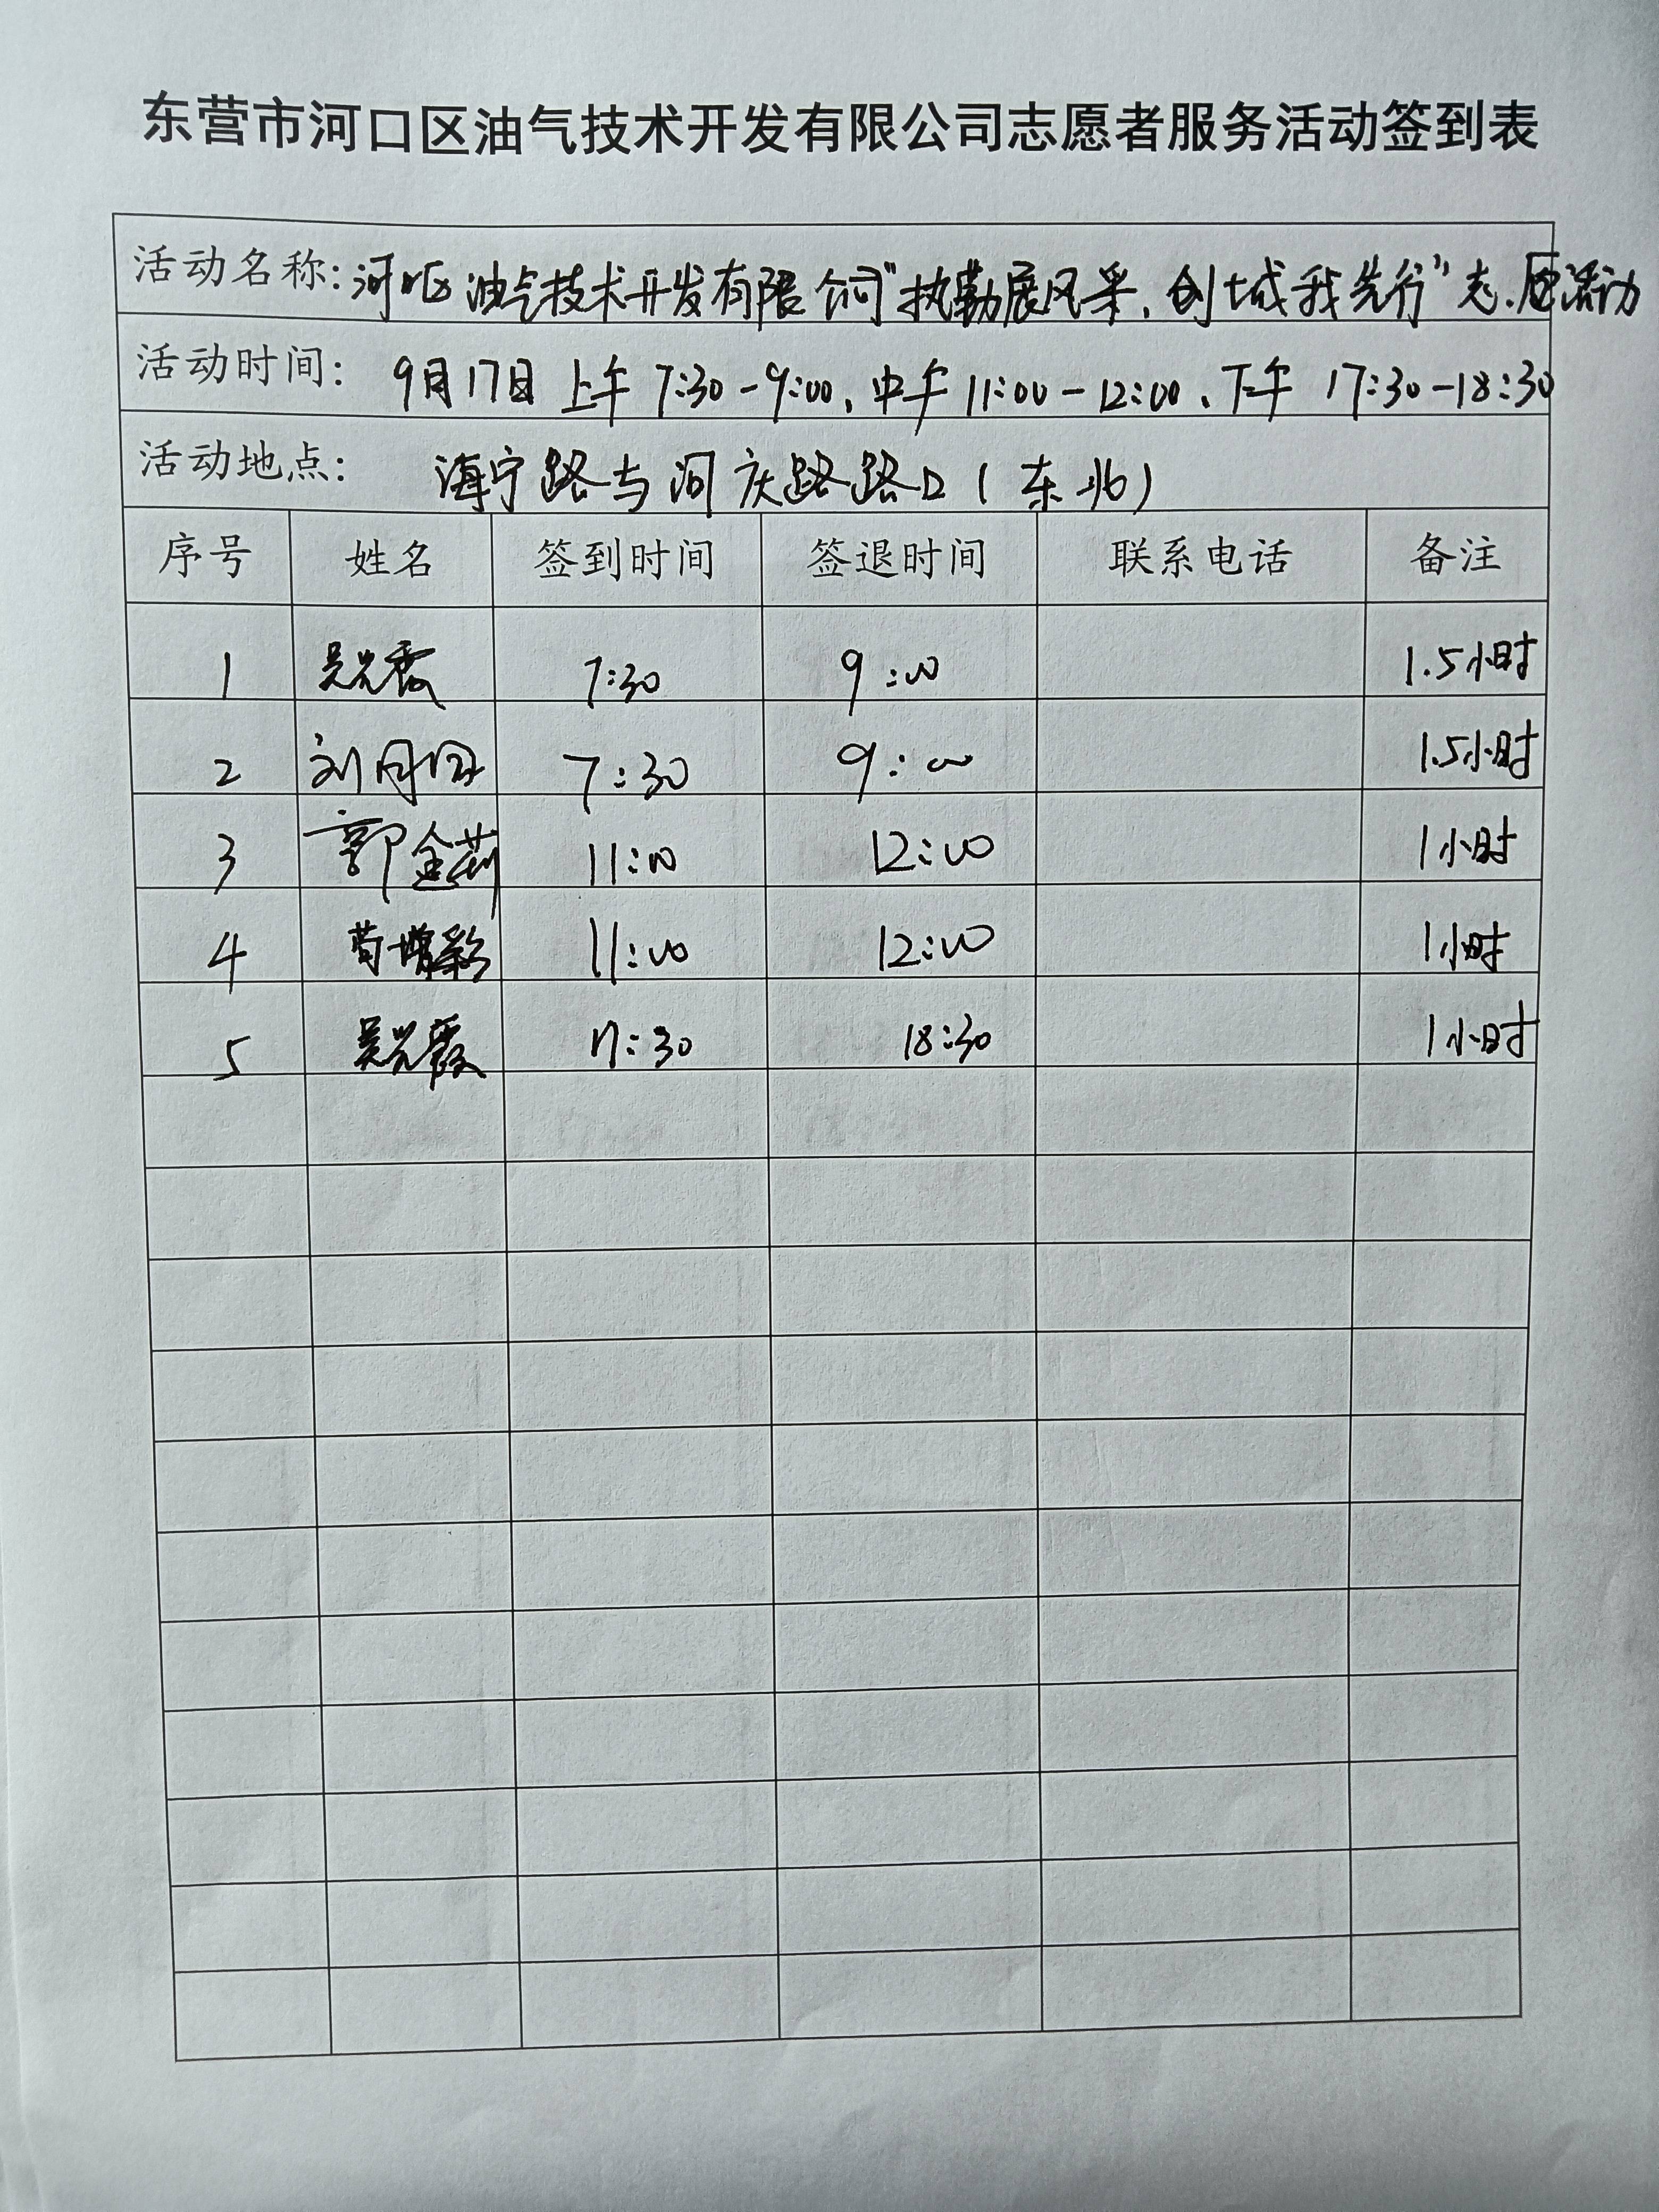 东营市河口区油气技术开发有限公司志愿者服务活动签到表
活动名称:河口区油气技术开发有限公司“执勤展风采,创城我先行”志愿活动
活动时间: 9月17日 上午 7:30-9:00、中午 11:00-12:00、下午 17:30-18:30
活动地点: 海宁路与河庆路路口(东北)
序号 姓名 签到时间 签退时间 联系电话 备注
1 吴光霞 7:30 9:00 1.5小时
2 刘 7:30 9:00 1.5小时
3 郭金莉 11:00 12:00 1小时
4 11:00 12:00 1小时
5 吴光霞 17:30 18:30 1小时